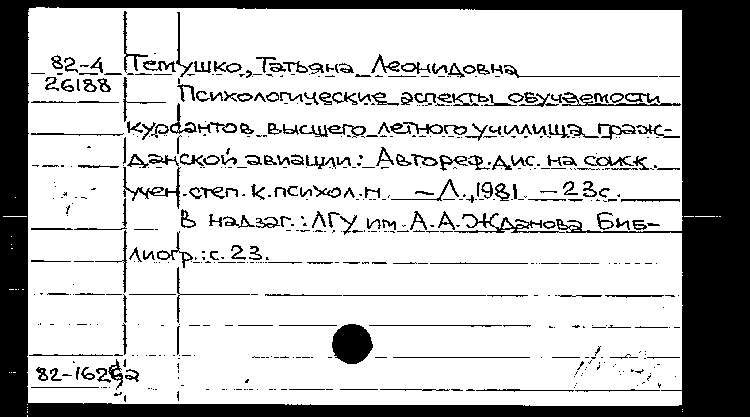 82-4 Темушко, Татьяна Леонидовна
26188 Психологические аспекты обучаемости
курсантов высшего летного училища граж-
данской авиации: Автореф. дис. на соиск.
учен. степ. к. психол. н. – Л., 1981 – 23 с.
В надзаг.: ЛГУ им. А. А. Жданова. Биб-
лиогр.: с. 23.